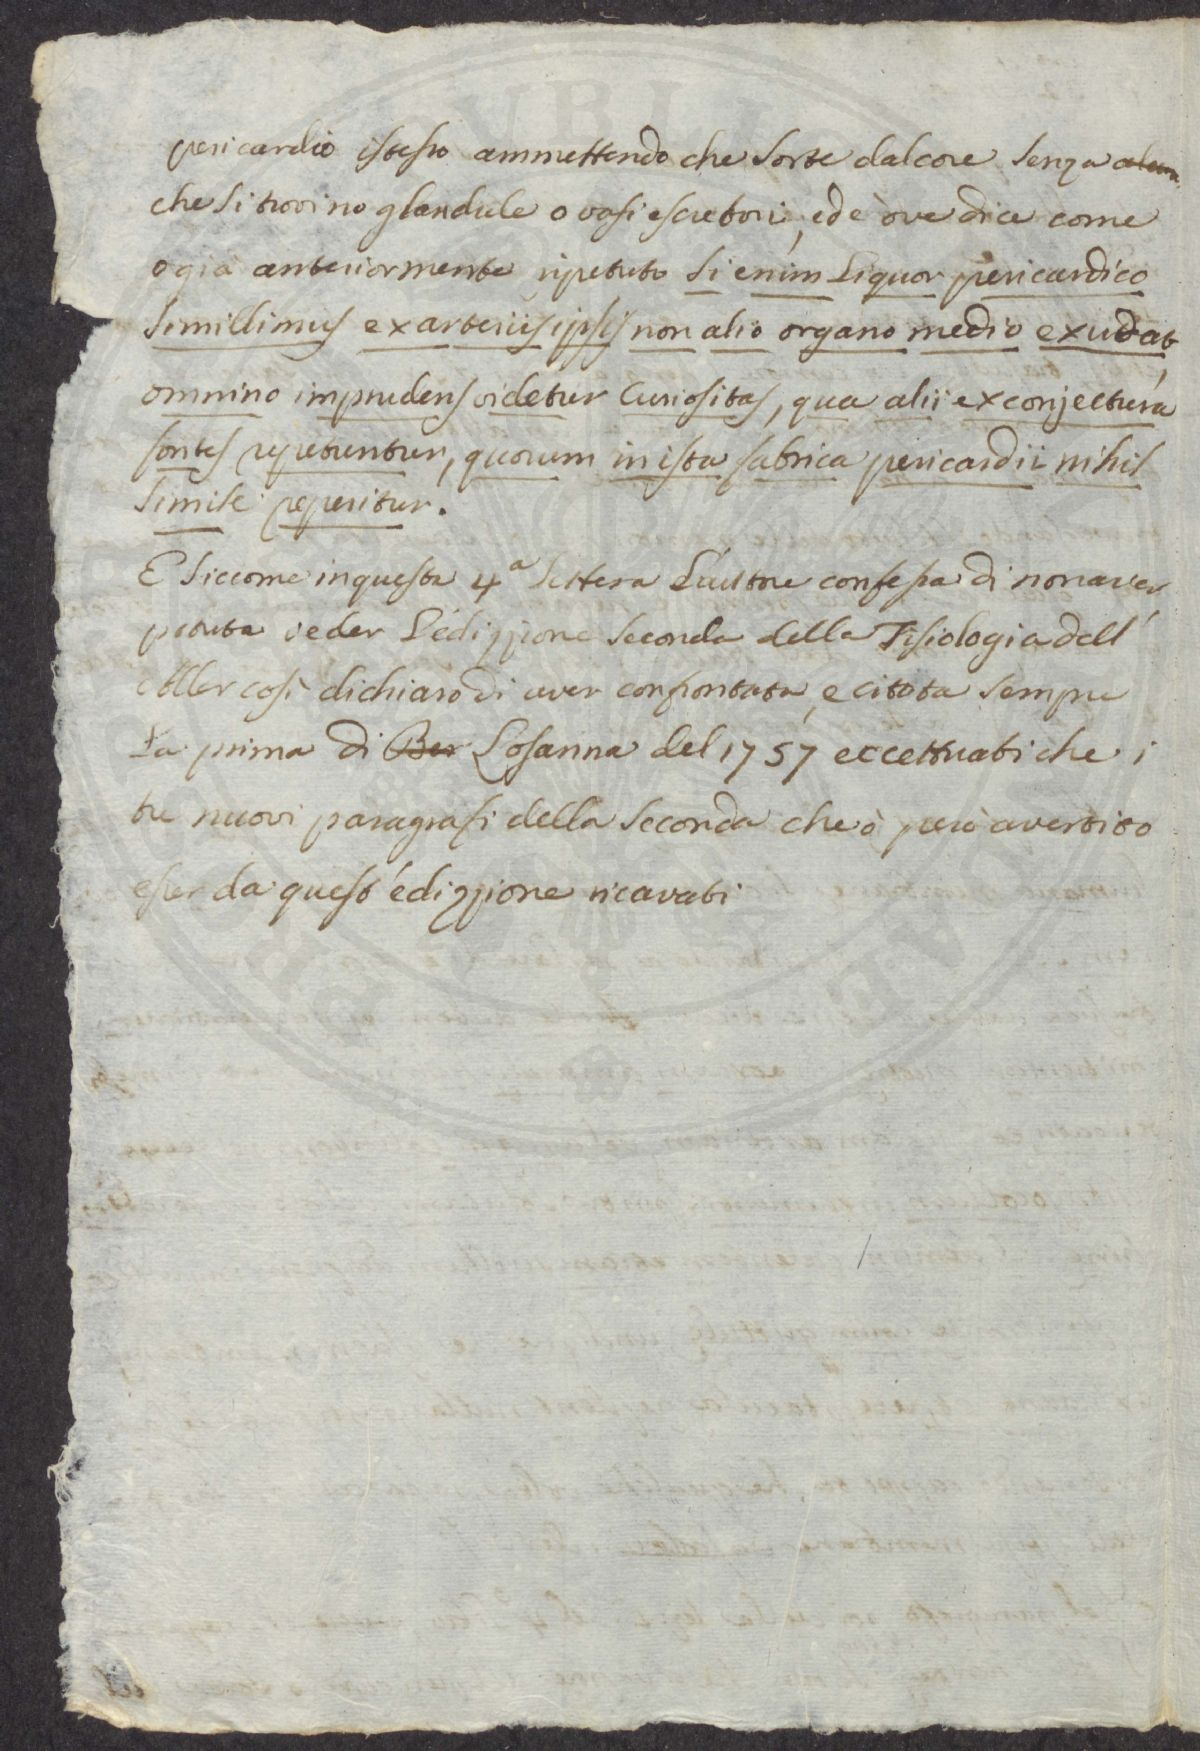 pericardio istesso ammettendo che sorte dal core senza alcun
che si trovino glandule o vasi escretori, ed è ove dice come
o già anteriormente ripetuto Si enim Liquor pericardico
simillimus ex arteriis ipsis non alio organo medio exudat,
omnino imprudens videtur Curiositas, qua alii ex conjectura
fontes repetuntur, quorum in ista fabrica pericardii nihil
simile reperitur.
E siccome in questa 4a lettera L'autore confessa di non aver
potuta veder L'edizzione seconda della Fisiologia dell'
Aller così dichiaro di aver confrontata, e citata sempre
La prima di Ber Losanna del 1757 eccettuati che i
tre nuovi paragrafi della seconda che ò però avertito
esser da quest'edizzione ricavati